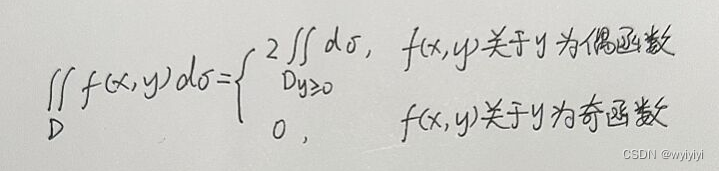 ∬_D f(x,y)dσ = { 2∬_{D_{y≥0}} dσ, f(x,y)关于y为偶函数
0, f(x,y)关于y为奇函数
CSDN @wyiyiyi